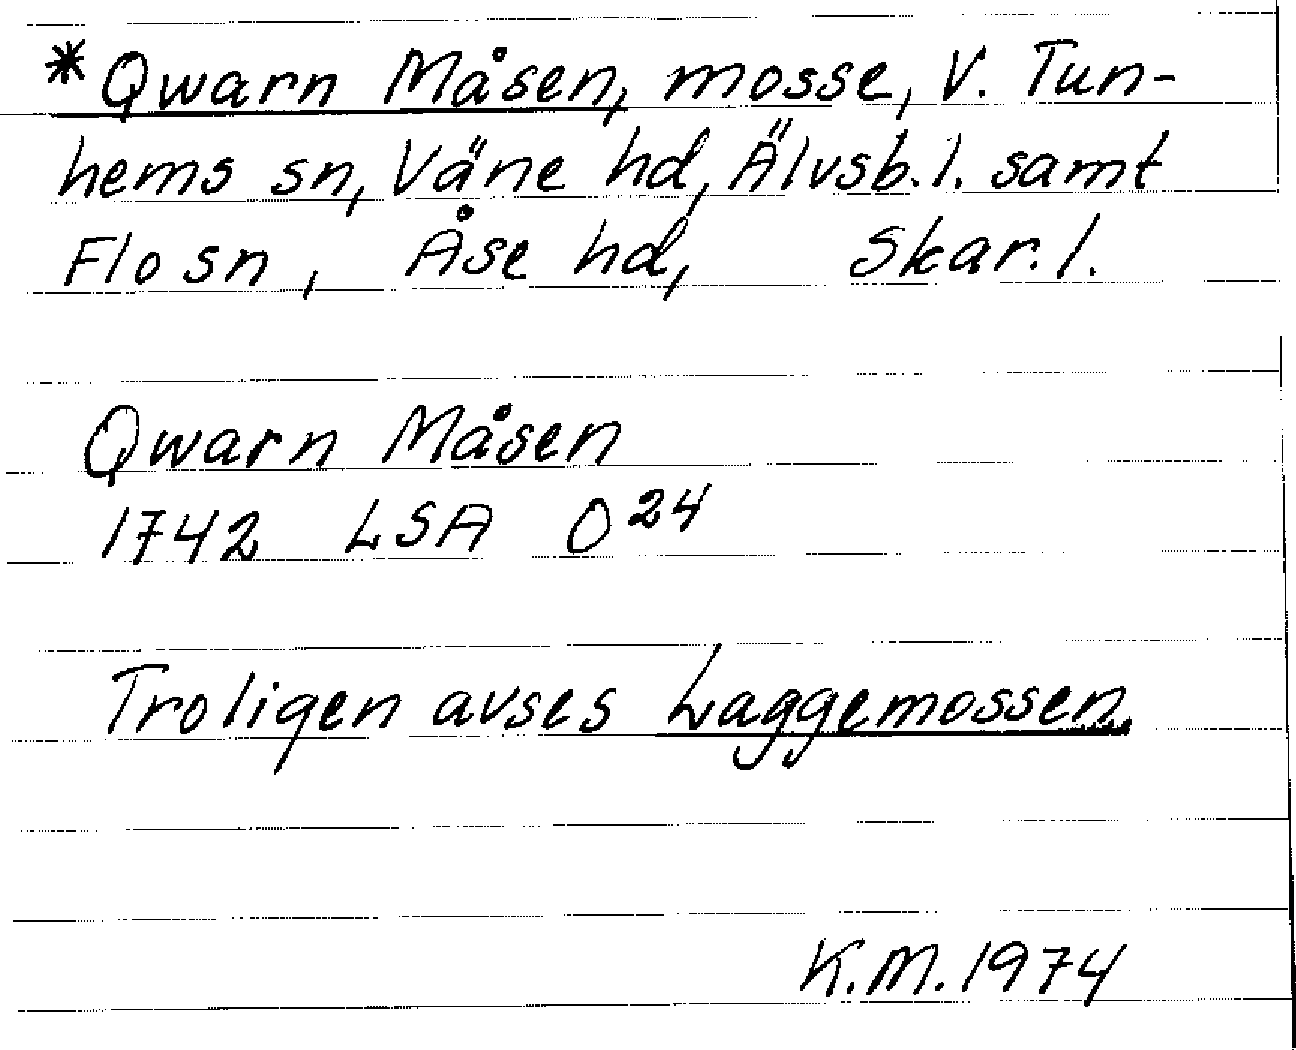 *Qwarn Måsen, mosse, V. Tun-
hems sn, Väne hd, Älvsb.l. samt
Flo sn, Åse hd, Skar.l.
Qwarn Måsen
1742 LSA O 24
Troligen avses Laggemossen.
K.M. 1974